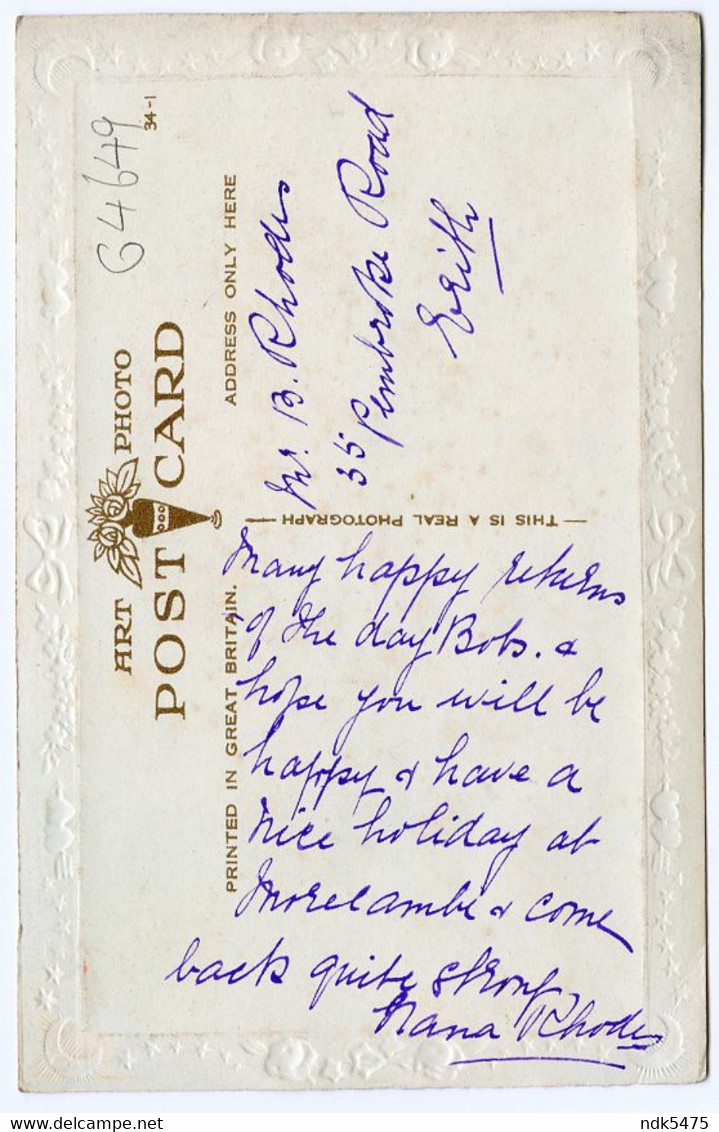 64649
34-1
ART PHOTO
POST CARD
PRINTED IN GREAT BRITAIN. ADDRESS ONLY HERE
— THIS IS A REAL PHOTOGRAPH —
Mr B. Rhodes
35 Pembroke Road
Erith
Many happy returns
of the day Bobs. &
hope you will be
happy & have a
nice holiday at
Morecambe & come
back quite strong
Nana Rhodes
ndk5475